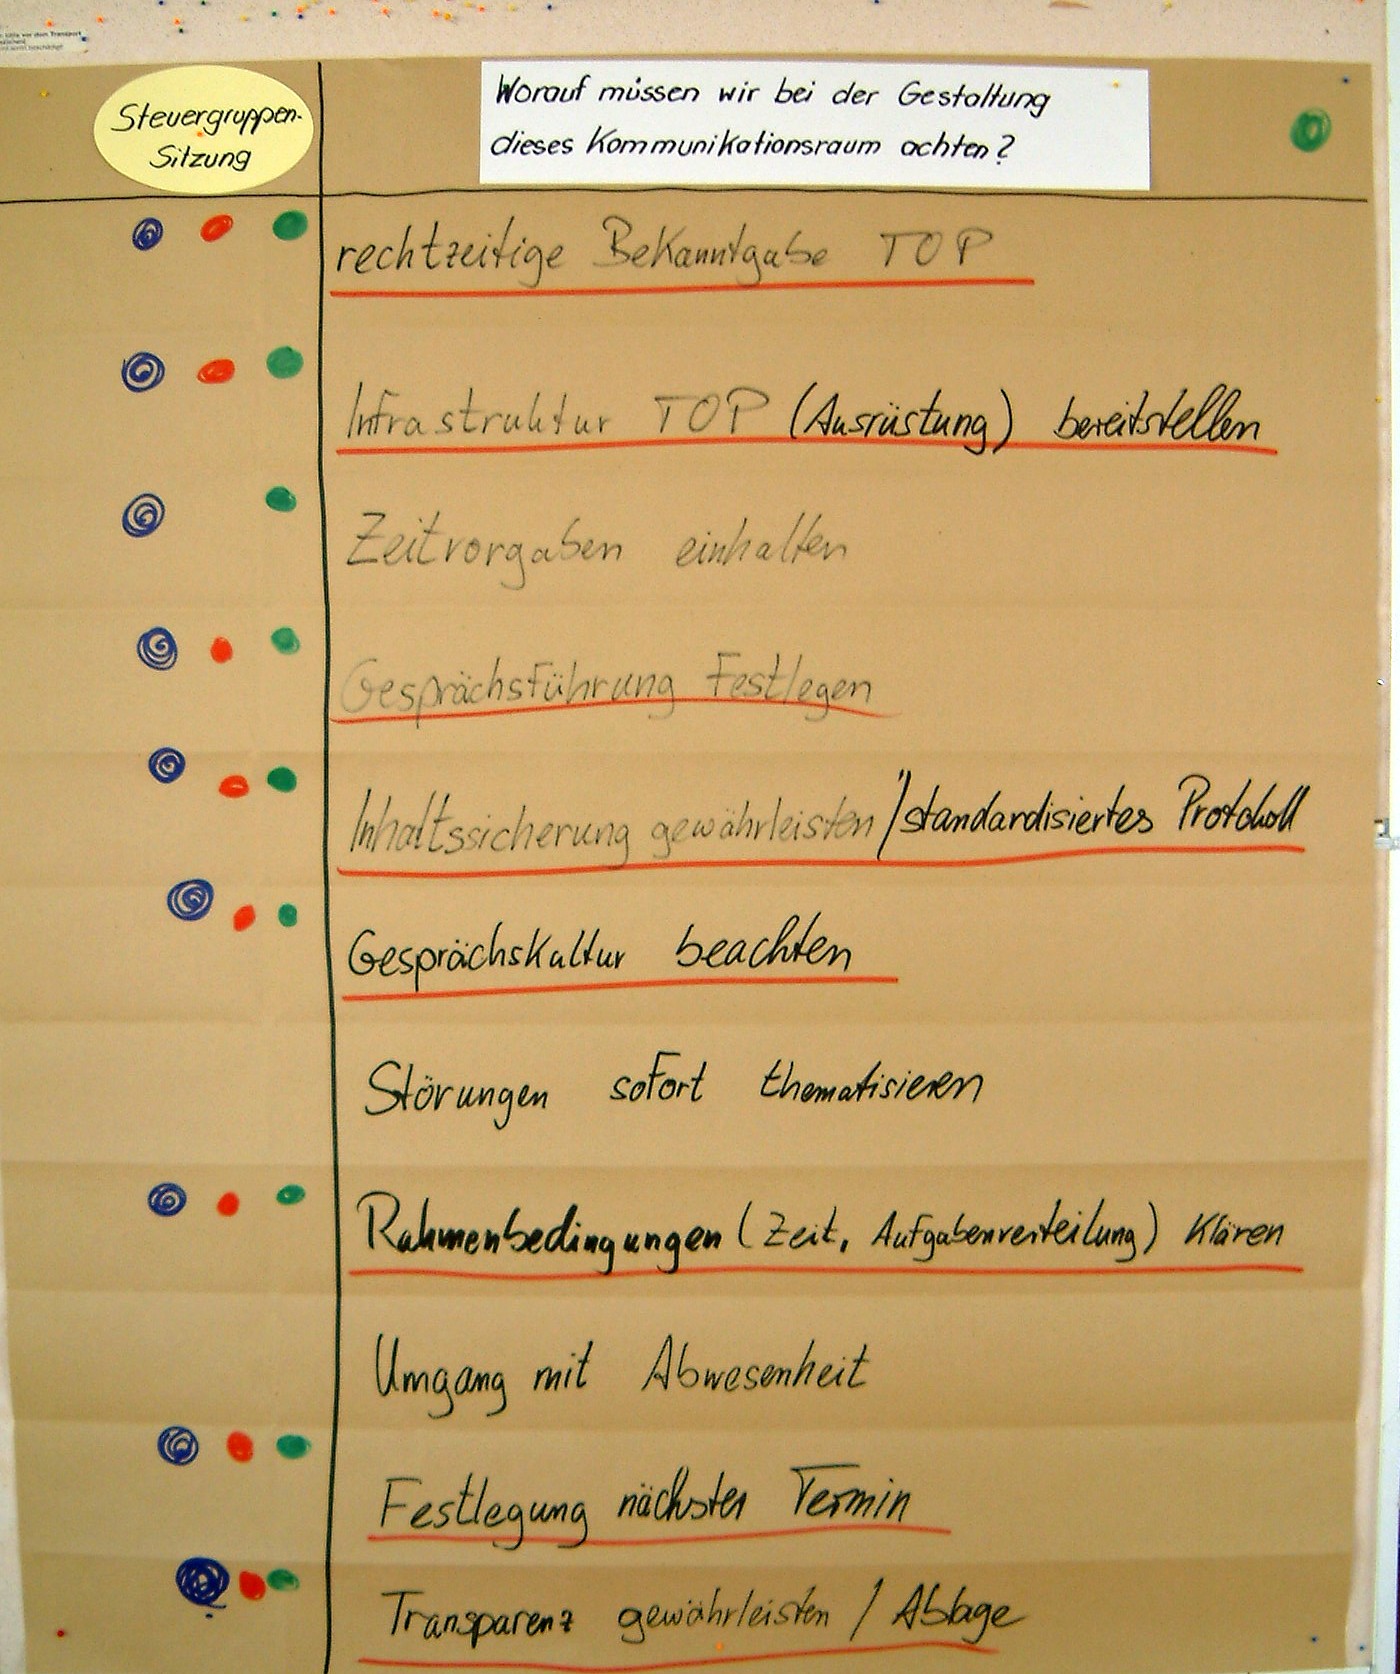 Steuergruppen-
Sitzung
Worauf müssen wir bei der Gestaltung
dieses Kommunikationsraum achten?
rechtzeitige Bekanntgabe TOP
Infrastruktur TOP (Ausrüstung) bereitstellen
Zeitvorgaben einhalten
Gesprächsführung Festlegen
Inhaltssicherung gewährleisten /standardisiertes Protokoll
Gesprächskultur beachten
Störungen sofort thematisieren
Rahmenbedingungen (Zeit, Aufgabenverteilung) klären
Umgang mit Abwesenheit
Festlegung nächster Termin
Transparenz gewährleisten / Ablage